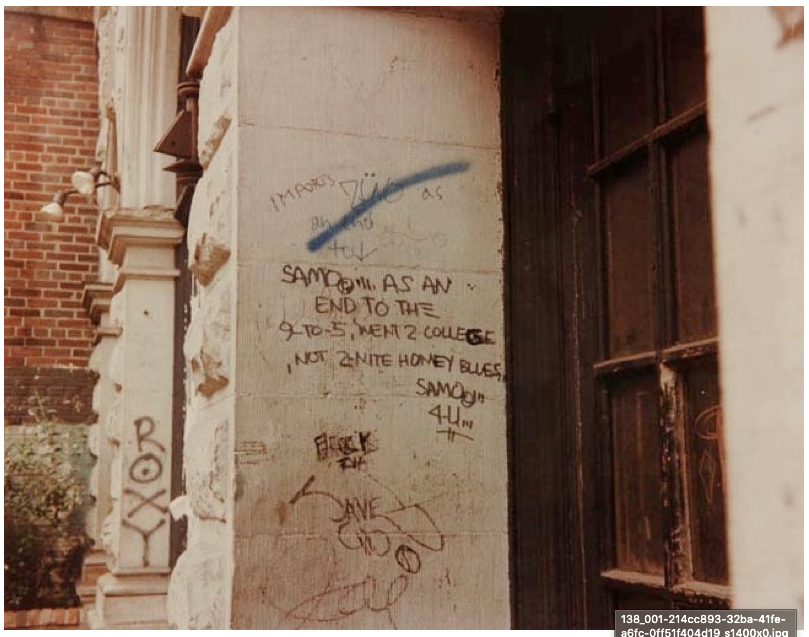 IMPORTS ZÜO as
an end
to↓
SAMO©"'. AS AN
END TO THE
9-TO-5, WENT 2 COLLEGE
, NOT 2-NITE HONEY BLUES,
SAMO©"
4-U...
SAVE
ROXY
138_001-214cc893-32ba-41fe-
a6fc-0ff51f404d19_s1400x0.jpg